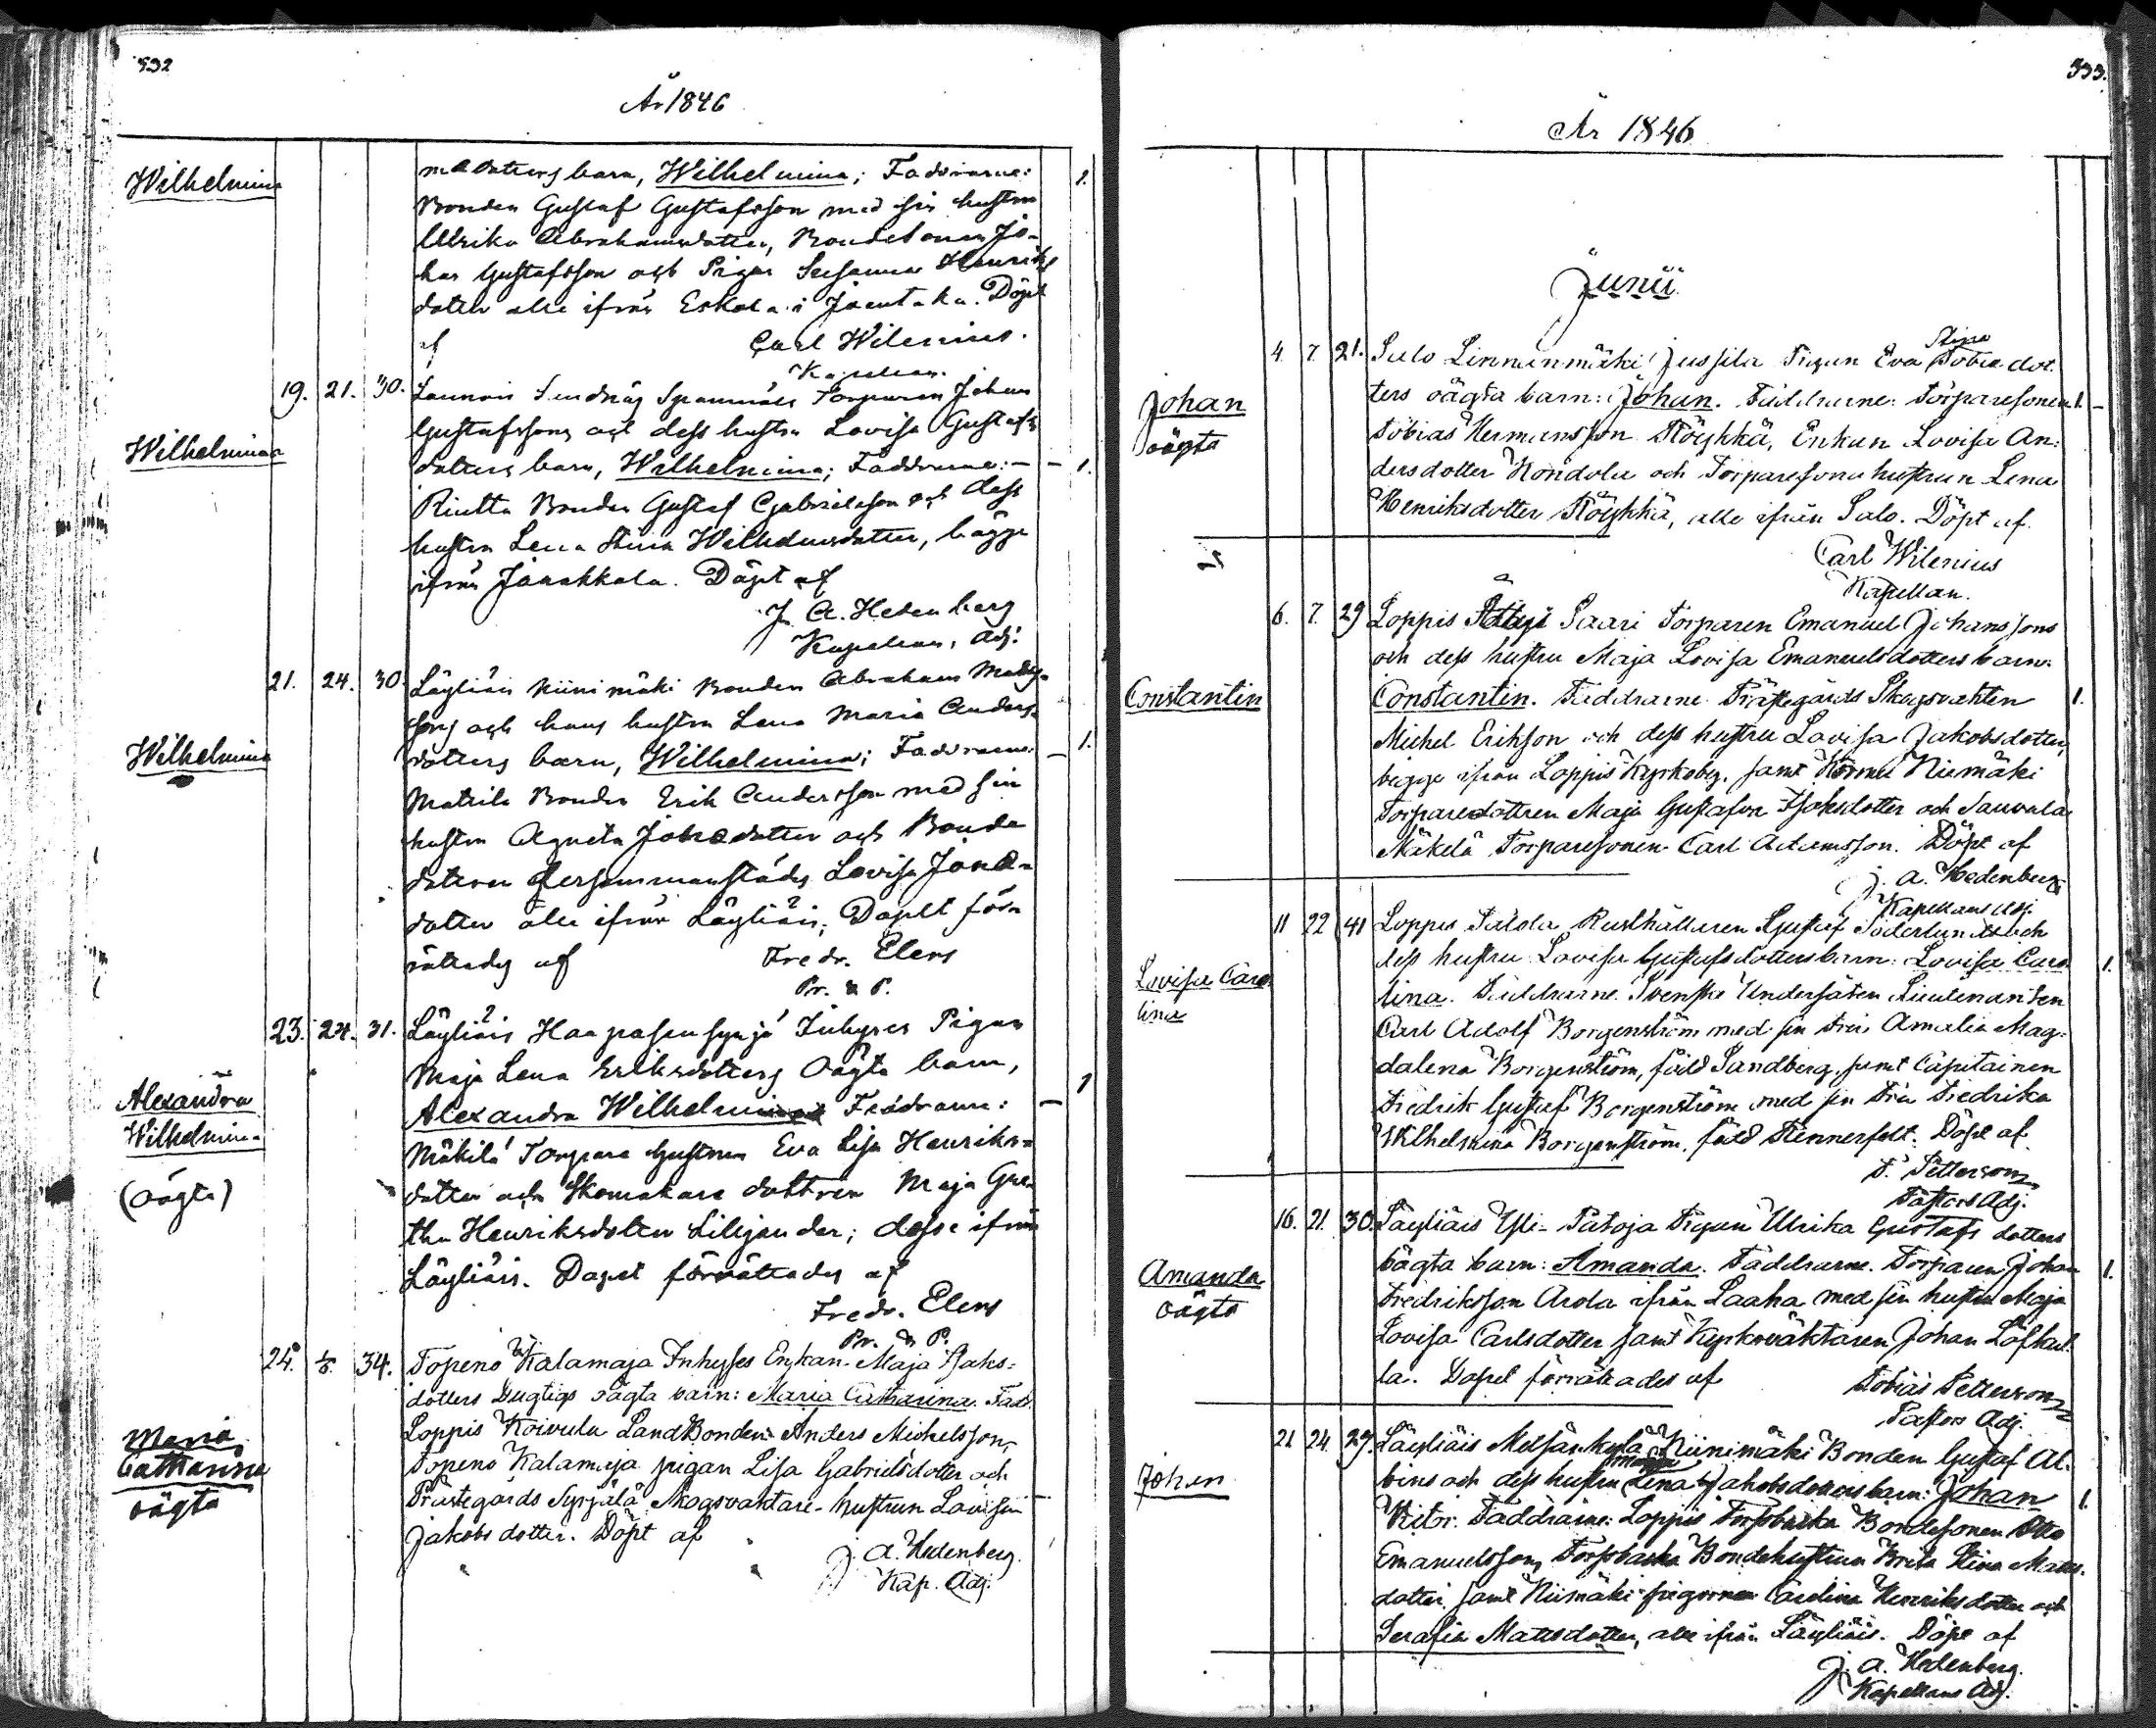 532
År 1846
Wilhelmina
barn, Wilhelmina; Faddrarne: 1.
Bonden Gustaf Gustafsson med sin hustru
Ulrika Abrahamsdotter, Bondesonen Jo-
han Gustafsson och Pigan Susanna Henriks
dotter alle ifrån Eskola i Jäentaka. Döpt
af Carl Wilenius.
Kapellan.
19. 21. 30. Torparen Johan
Gustafssons och dess hustru Lovisa Gustafs
Wilhelmina
dotters barn, Wilhelmina; Faddrarne: – 1.
Riutta Bonden Gustaf Gabrielsson och dess
hustru Lena Stina Wilhelmsdotter, bägge
ifrån Janakkala. Döpt af
J. A. Hedenberg
Kapellans, Adj.
21. 24. 30. Läyliäis Niinimäki Bonden Abraham
sons och hans hustru Lena Maria Anders-
Wilhelmina
dotters barn, Wilhelmina; Faddrarne: – 1.
Mattila Bonden Erik Andersson med sin
hustru Agneta dotter och Bonde
dottren dersammanstädes Lovisa
dotter alle ifrån Läyliäis; Dopet för-
rättades af Fredr. Elers
Pr. & P.
23. 24. 31. Läyliäis Haapasensyrjä Inhyses Pigan
Maja Lena Eriksdotters Oägta barn,
Alexandra
Wilhelmina
(oägta)
Alexandra Wilhelmina Faddrarne: – 1
Mäkilä Torpare hustrun Eva Lisa Henriks-
dotter och Skomakare dottren Maja Gre-
tha Henriksdotter Liljander; desse ifrån
Läyliäis. Dopet förrättades af
Fredr. Elers
Pr. & P.
24. 1/6. 34. Topeno Kalamaja Inhyses Enkan Maja Isaks-
dotters Dugtigs oägta barn: Maria Catharina. Fadd.
Maria
Catharina
oägta
Loppis Koivula LandBonden Anders Michelsson,
Topeno Kalamaja pigan Lisa Gabrielsdotter och
Prästegårds Syrjälä Skogsvaktare-hustrun Lovisa –
Jakobs dotter. Döpt af
J. A. Hedenberg.
Kap. Adj.
533.
År 1846
Junii
4. 7. 21. Salo Linnanmäki Jussila Pigan Eva Stina Tobia dot-
Johan
oägta
ters oägta barn: Johan. Faddrarne: Torparesonen 1. –
Tobias Hermansson Röyhkä, Enkan Lovisa An-
dersdotter Kondola och Torparesona hustrun Lena
Henriksdotter Röyhkä, alle ifrån Salo. Döpt af
Carl Wilenius
Kapellan.
6. 7. 29 Loppis Saari Torparen Emanuel Johanssons
och dess hustru Maja Lovisa Emanuelsdotters barn:
Constantin
Constantin. Faddrarne Prästegårds Skogsvakten 1.
Michel Erikson och dess hustru Lovisa Jakobsdotter,
bägge ifrån Loppis Kyrkoby, samt Niemäki
Torparedottren Maja Gustafva Isaksdotter och Sauvala
Mäkelä Torparesonen Carl Adamsson. Döpt af
J. A. Hedenberg
Kapellans Adj.
11 22 41 Loppis Rusthållaren Gustaf Söderlund och
Lovisa Caro
lina
dess hustru Lovisa Gustafsdotters barn: Lovisa Caro- 1.
lina. Faddrarne. Svenske Undersåten Lieutenanten
Carl Adolf Borgenström med sin fru Amalia Mag-
dalena Borgenström, född Sandberg, samt Capitainen
Fredrik Gustaf Borgenström med sin fru Fredrika
Wilhelmina Borgenström, född Döpt af
T. Petterson
Pastors Adj.
16. 21. 30. Läyliäis Yli-Patoja Pigan Ulrika Gustafs dotters
Amanda
oägta
oägta barn: Amanda. Faddrarne. Torparen Johan 1.
Fredriksson Arola ifrån Laaha med sin hustru Maja
Lovisa Carlsdotter samt Kyrkoväktaren Johan
la. Dopet förrättades af Tobias Petterson
Pastors Adj.
21 24. 29. Läyliäis Metsänkylä Niinimäki Bonden Gustaf Al-
Johan
bins och dess hustru Lena Jakobsdotters barn: Johan 1.
Vitor. Faddrarne: Loppis Bondesonen Otto
Emanuelsson, Bondehustrun Brita Stina Matts-
dotter, samt Niimäki pigorna Carolina Henriksdotter och
Serafia Mattsdotter, alle ifrån Läyliäis. Döpt af
J. A. Hedenberg.
Kapellans Adj.